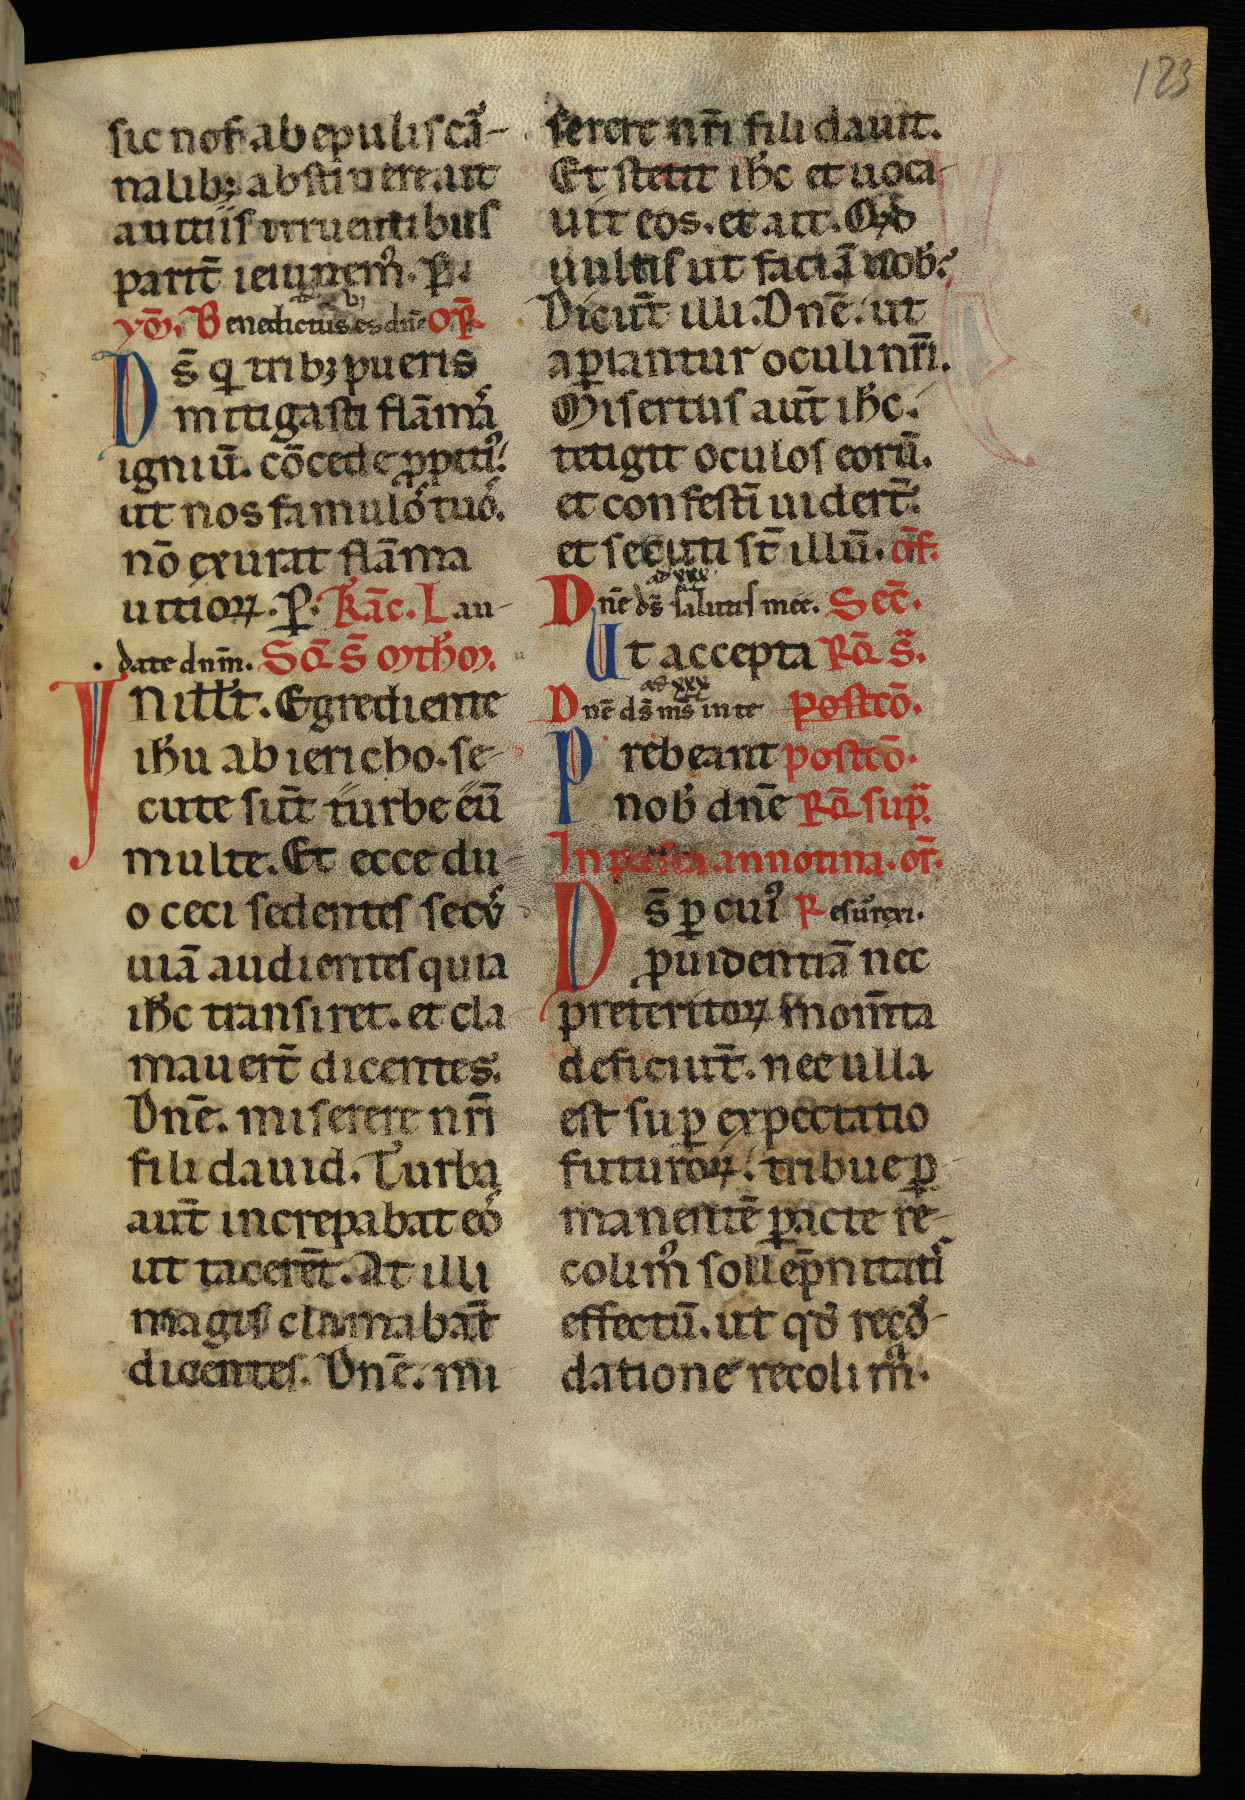 123
sic nos ab epulis car̄-
nalib; abstinere. ut
a uitiis irruentibus
parit̄ ieiunem᷒. P̄.
ym̄. Benedictus es dn̄e OR̄
Ds̄ q̄ trib; pueris
mitigasti flāmas
igniū. cōcede ꝓpiti᷒.
ut nos famulos tuos.
nō exurat flāma
uitioꝝ. P̄. Kāc. Lau-
date dnm̄. Sc̄d s̄ mtħm.
IN illt̄. Egrediente
iħu ab iericho. se-
cute sūt turbe eū
multe. Et ecce du-
o ceci sedentes secus
uiā audientes quia
iħc transiret. et cla
mauert̄ dicentes.
Dn̄e. miserere nr̄i
fili dauid. Turba
aūt increpabat eos
ut tacerēt. At illi
magis clamabāt
dicentes. Dn̄e. mi
serere nr̄i fili dauit.
Et stetit iħc et uoca-
uit eos. et ait. Qđ
uultis ut faciā uob̄.
Dicūt illi. Dn̄e. ut
aꝑiantur oculi nr̄i.
Misertus aūt iħc.
tetigit oculos eorū.
et confestī uidert̄.
et secuti st̄ illū. of̄.
ad xxx
Dn̄e ds̄ salutis mee. Sec̄.
Ut accepta Rq̄ s̄.
ad xxx
Dn̄e ds̄ ms̄ in te postcō.
Prebeant postcō.
nob̄ dn̄e Rq̄ sup̄.
In pasca annotina. or̄.
Ds̄ ꝑ cui᷒ Resurrexi.
ꝓuidentiā nec
preteritoꝝ momt̄a
deficiūt. nec ulla
est suꝑ expectatio
futuroꝝ. tribue ꝑ
manentē ꝑacte re-
colim᷒ sollēpnitatis
effectū. ut qđ recor-
datione recolim᷒.